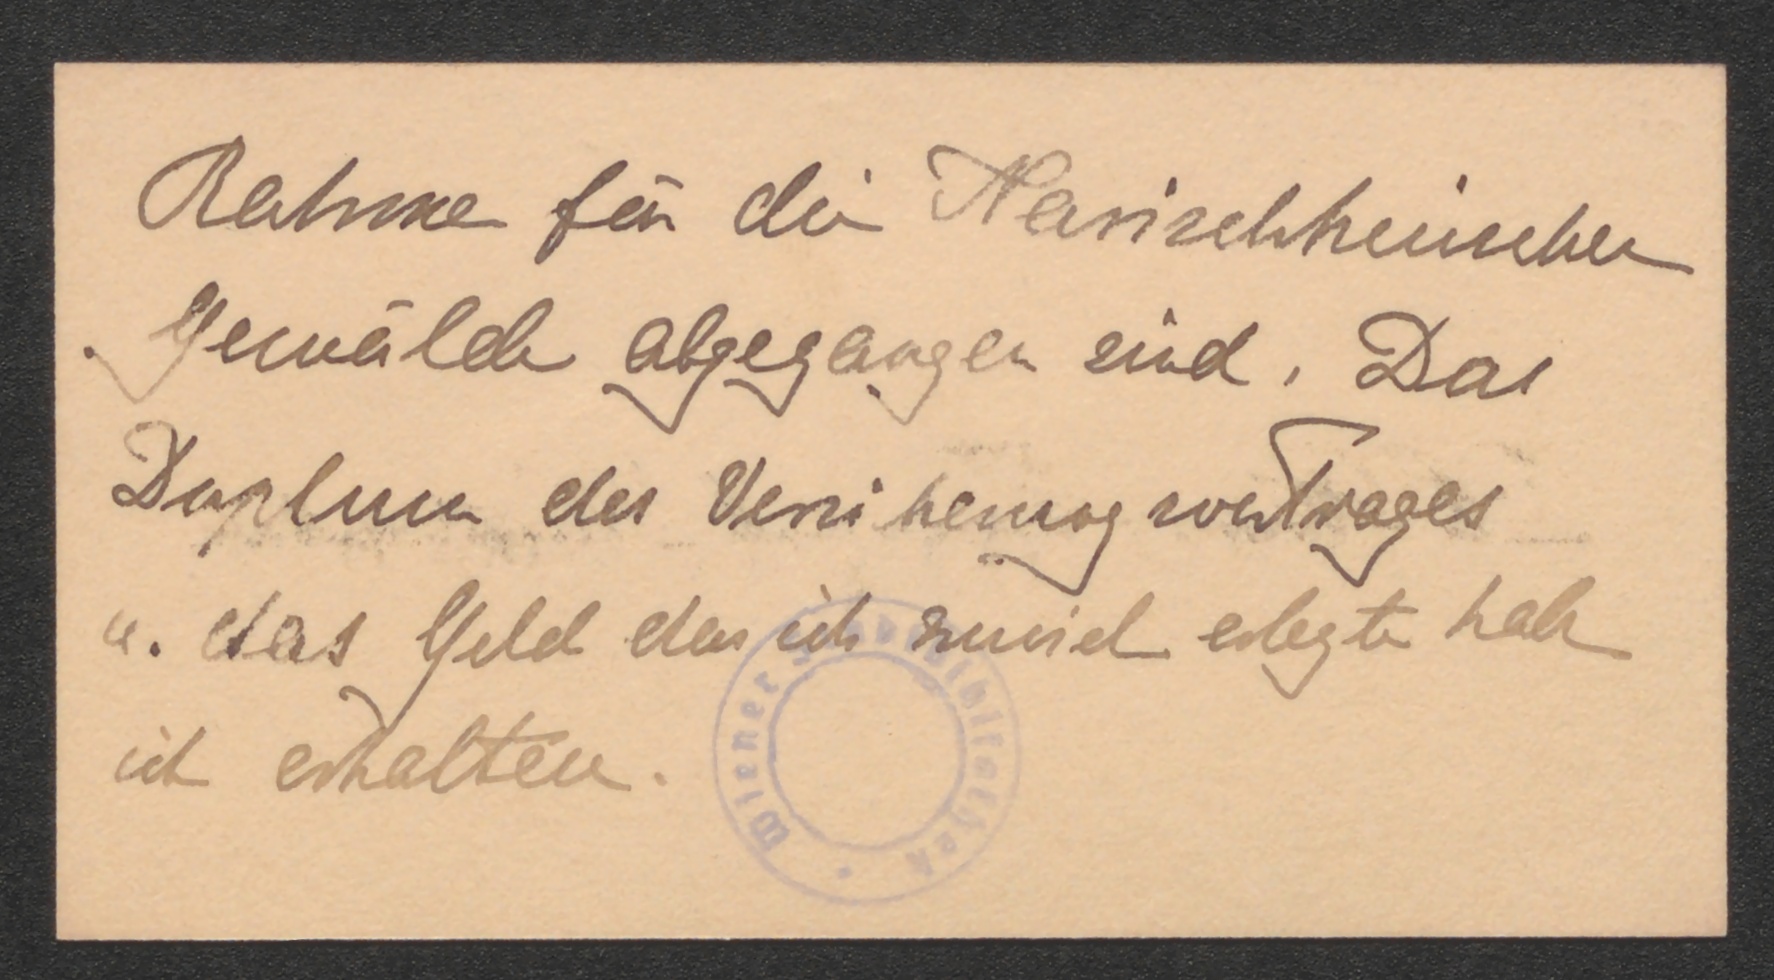 Rahme für die Harischheinischen
Gemälde abgegangen sind. Das
Duplum des Versicherungsvertrages
u. das Geld das ich zuviel erlegte habe
ich erhalten.
Wiener Stadtbibliothek